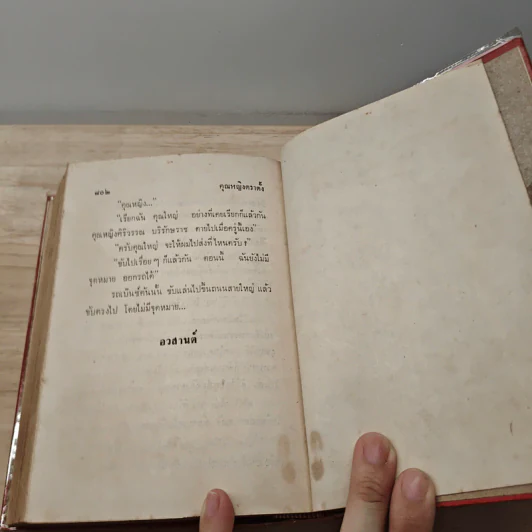 ๘๐๒ คุณหญิงตราตั้ง
"คุณหญิง..."
"เรียกฉัน คุณใหญ่ อย่างที่เคยเรียกก็แล้วกัน
คุณหญิงศิริวรรณ บริรักษราช ตายไปเมื่อครู่นี้เอง"
"ครับคุณใหญ่ จะให้ผมไปส่งที่ไหนครับ ?"
"ขับไปเรื่อย ๆ ก็แล้วกัน ตอนนี้ ฉันยังไม่มี
จุดหมาย ออกรถได้"
รถเบ็นซ์คันนั้น ขับแล่นไปขึ้นถนนสายใหญ่ แล้ว
ขับตรงไป โดยไม่มีจุดหมาย...
อวสานต์